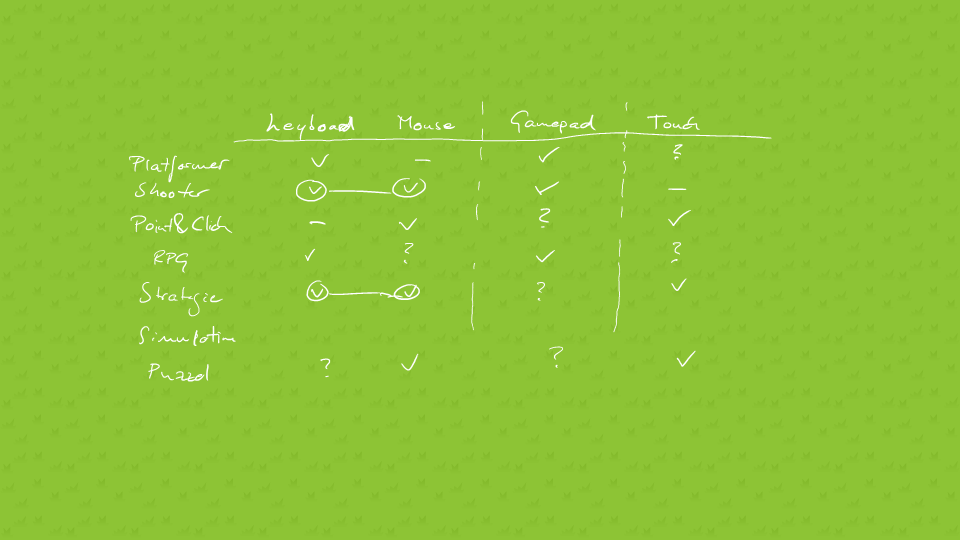 Keyboard Mouse Gamepad Touch
Platformer ✓ – ✓ ?
Shooter ✓ ✓ ✓ –
Point&Click – ✓ ? ✓
RPG ✓ ? ✓ ?
Strategie ✓ ✓ ? ✓
Simulation
Puzzel ? ✓ ? ✓